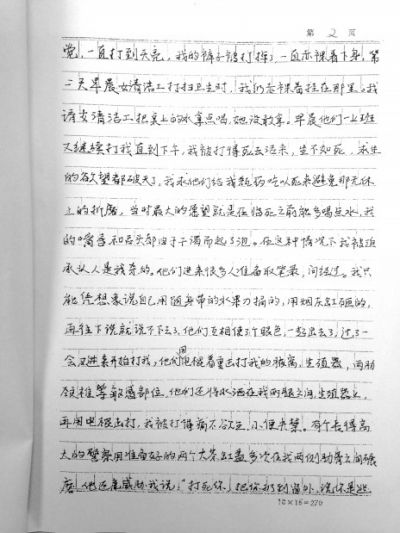 第 2 页
觉，一直打到天亮，我的裤子被打掉了，一直赤裸着下身，第
二天早晨女清洁工打扫卫生时，我仍赤裸着挂在那里。我
请女清洁工把桌上的水拿点喝，她没敢拿。早晨他们一上班
又继续打我直到下午，我被打得死去活来，生不如死，求生
的欲望都破灭了，我求他们给我颗药吃以死来避免那无休
止的折磨，当时最大的愿望就是在临死之前能多喝些水，我
的嘴唇和舌头都由于干渴而起了泡。在这种情况下我被迫
承认人是我杀的。他们进来很多人准备取笔录，问经过。我只
能凭想象说自己用随身带的水果刀捅的，用烟灰缸砸的，
再往下说就说不下去了，他们互相使了个眼色，一起出去了，过了一
会又进来开始打我，他们用电棍着重击打我的裤裆，生殖器，两肋
颈椎等敏感部位，他们还将水洒在我两腿之间，生殖器上，
再用电棍击打，我被打得痛不欲生，小便失禁。有个长得高
大的警察用准备好的两个大茶缸盖多次在我两侧肋骨之间碾
磨，他还威胁我说："打死你，把你扔到窗外，说你是逃
18×15=270